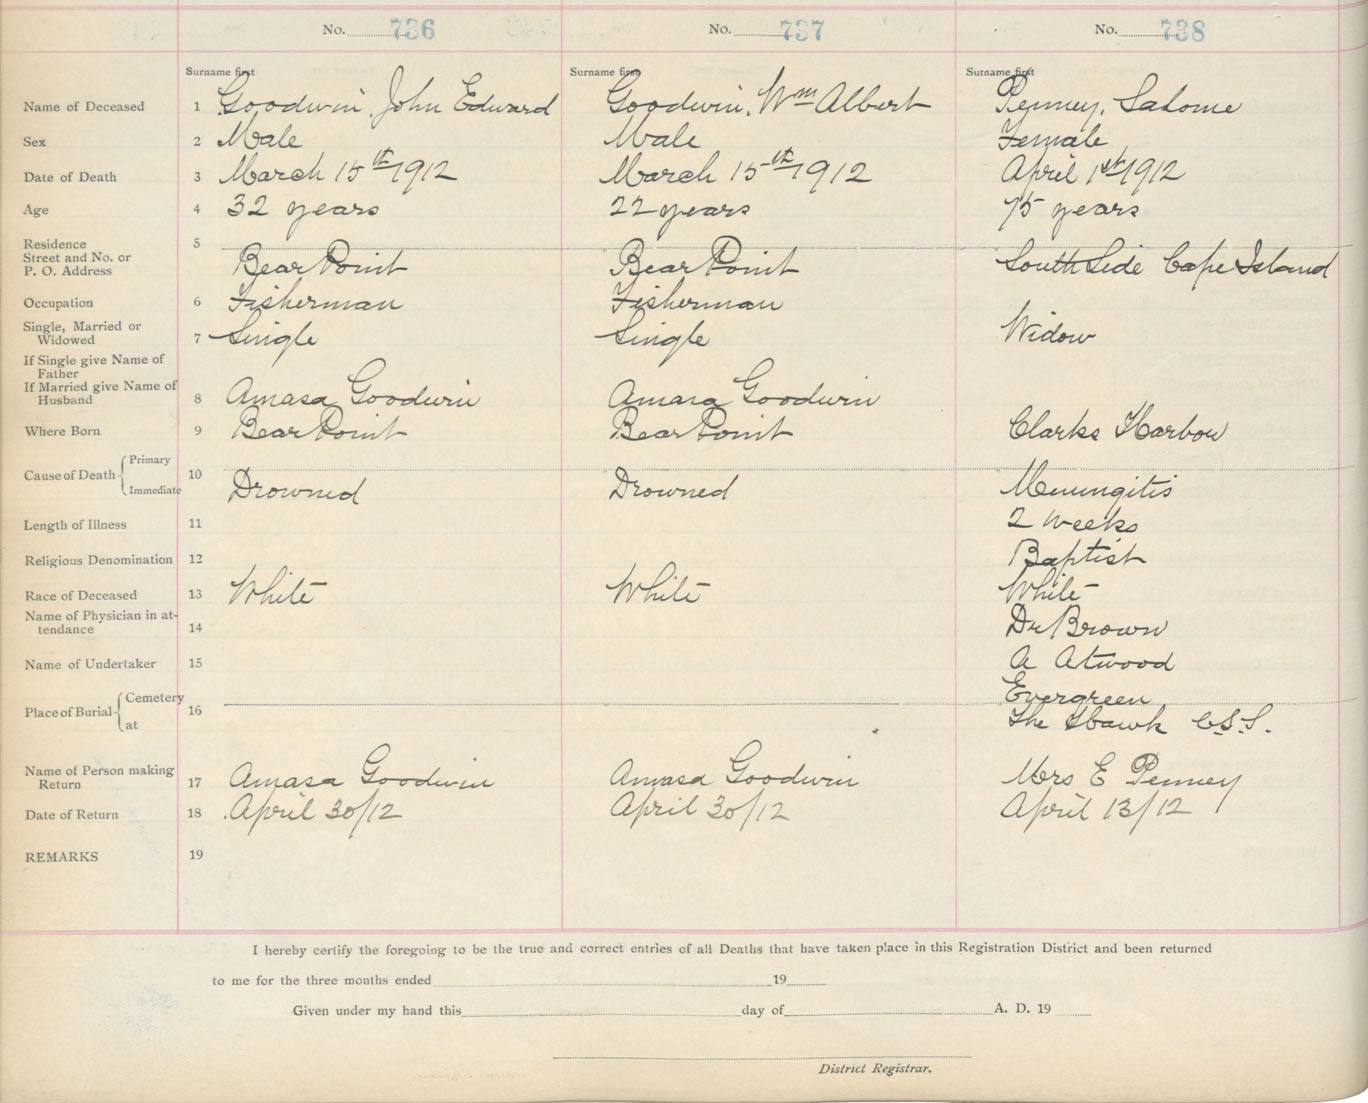 No. 736 No. 737 No. 738
Surname first Surname first Surname first
Name of Deceased 1 Goodwin, John Edward Goodwin, Wm Albert Penney, Salome
Sex 2 Male Male Female
Date of Death 3 March 15th 1912 March 15th 1912 April 1st 1912
Age 4 32 years 22 years 75 years
Residence 5
Street and No. or
P. O. Address Bear Point Bear Point South Side Cape Island
Occupation 6 Fisherman Fisherman
Single, Married or
Widowed 7 Single Single Widow
If Single give Name of
Father
If Married give Name of
Husband 8 Amasa Goodwin Amasa Goodwin
Where Born 9 Bear Point Bear Point Clarks Harbour
Cause of Death Primary
Immediate 10 Drowned Drowned Meningitis
Length of Illness 11 2 weeks
Religious Denomination 12 Baptist
Race of Deceased 13 White White White
Name of Physician in at-
tendance 14 Dr Brown
Name of Undertaker 15 A Atwood
Place of Burial Cemetery 16 Evergreen
at The Hawk C.S.I.
Name of Person making
Return 17 Amasa Goodwin Amasa Goodwin Mrs E Penney
Date of Return 18 April 30/12 April 30/12 April 13/12
REMARKS 19
I hereby certify the foregoing to be the true and correct entries of all Deaths that have taken place in this Registration District and been returned
to me for the three months ended 19
Given under my hand this day of A. D. 19
District Registrar.